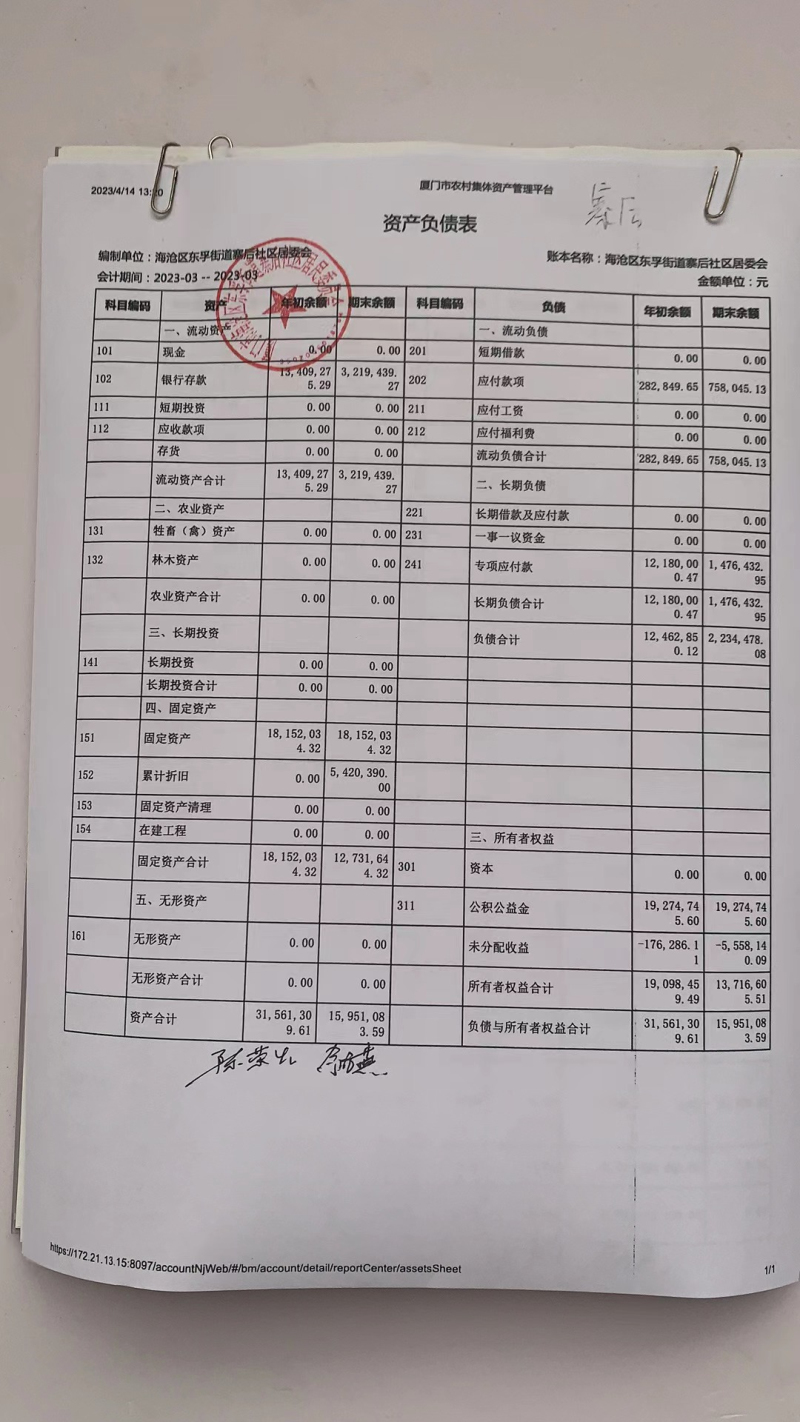 2023/4/14 13:20 厦门市农村集体资产管理平台
寨后
资产负债表
编制单位：海沧区东孚街道寨后社区居委会 账本名称：海沧区东孚街道寨后社区居委会
会计期间：2023-03 -- 2023-03 金额单位：元
科目编码 资产 年初余额 期末余额 科目编码 负债 年初余额 期末余额
一、流动资产 一、流动负债
101 现金 0.00 0.00 201 短期借款 0.00 0.00
102 银行存款 13,409,275.29 3,219,439.27 202 应付款项 282,849.65 758,045.13
111 短期投资 0.00 0.00 211 应付工资 0.00 0.00
112 应收款项 0.00 0.00 212 应付福利费 0.00 0.00
存货 0.00 0.00 流动负债合计 282,849.65 758,045.13
流动资产合计 13,409,275.29 3,219,439.27 二、长期负债
二、农业资产 221 长期借款及应付款 0.00 0.00
131 牲畜（禽）资产 0.00 0.00 231 一事一议资金 0.00 0.00
132 林木资产 0.00 0.00 241 专项应付款 12,180,000.47 1,476,432.95
农业资产合计 0.00 0.00 长期负债合计 12,180,000.47 1,476,432.95
三、长期投资 负债合计 12,462,850.12 2,234,478.08
141 长期投资 0.00 0.00
长期投资合计 0.00 0.00
四、固定资产
151 固定资产 18,152,034.32 18,152,034.32
152 累计折旧 0.00 5,420,390.00
153 固定资产清理 0.00 0.00
154 在建工程 0.00 0.00 三、所有者权益
固定资产合计 18,152,034.32 12,731,644.32 301 资本 0.00 0.00
五、无形资产 311 公积公益金 19,274,745.60 19,274,745.60
161 无形资产 0.00 0.00 未分配收益 -176,286.11 -5,558,140.09
无形资产合计 0.00 0.00 所有者权益合计 19,098,459.49 13,716,605.51
资产合计 31,561,309.61 15,951,083.59 负债与所有者权益合计 31,561,309.61 15,951,083.59
https://172.21.13.15:8097/accountNjWeb/#/bm/account/detail/reportCenter/assetsSheet 1/1